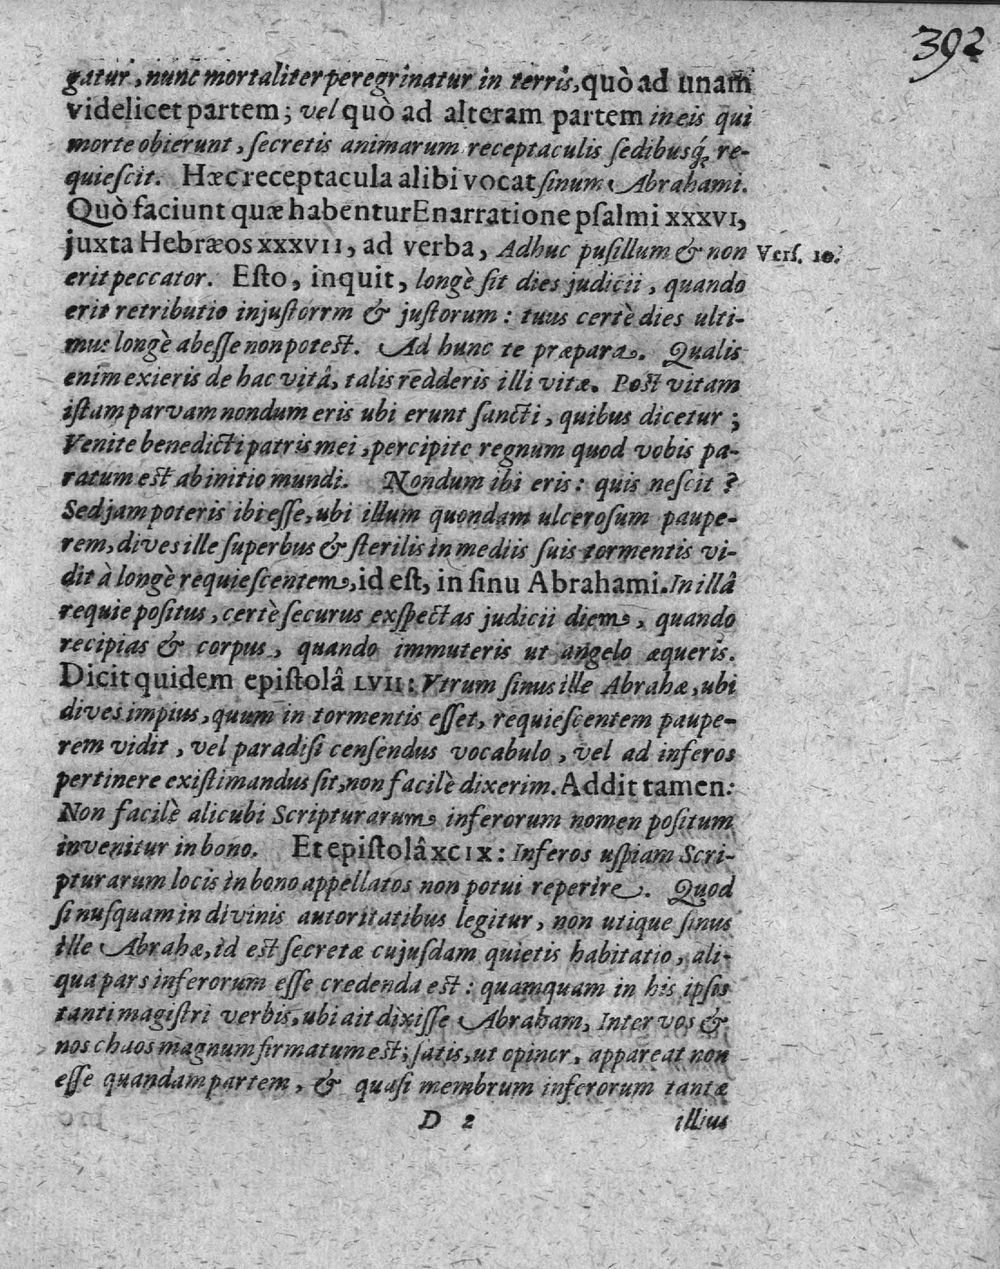 392
gatur, nunc mortaliter peregrinatur in terris, quò ad unam
videlicet partem; vel quò ad alteram partem in eis qui
morte obierunt, secretis animarum receptaculis sedibusq́; re-
quiescit. Hæc receptacula alibi vocat sinum Abrahami.
Quò faciunt quæ habentur Enarratione psalmi XXXVI,
juxta Hebræos XXXVII, ad verba, Adhuc pusillum & non
Vers. 10.
erit peccator. Esto, inquit, longè sit dies judicii, quando
erit retributio injustorrm & justorum: tuus certè dies ulti-
mus longè abesse non potest. Ad hunc te præpara. Qualis
enim exieris de hac vitâ, talis redderis illi vitæ. Post vitam
istam parvam nondum eris ubi erunt sancti, quibus dicetur;
Venite benedicti patris mei, percipite regnum quod vobis pa-
ratum est ab initio mundi. Nondum ibi eris: quis nescit?
Sed jam poteris ibi esse, ubi illum quondam ulcerosum paupe-
rem, dives ille superbus & sterilis in mediis suis tormentis vi-
dit à longè requiescentem, id est, in sinu Abrahami. In illâ
requie positus, certè securus exspectas judicii diem, quando
recipias & corpus, quando immuteris ut angelo æqueris.
Dicit quidem epistolâ LVII: Vtrum sinus ille Abrahæ, ubi
dives impius, quum in tormentis esset, requiescentem paupe-
rem vidit, vel paradisi censendus vocabulo, vel ad inferos
pertinere existimandus sit, non facilè dixerim. Addit tamen:
Non facilè alicubi Scripturarum inferorum nomen positum
invenitur in bono. Et epistolâ XCIX: Inferos uspiam Scri-
pturarum locis in bono appellatos non potui reperire. Quod
si nusquam in divinis autoritatibus legitur, non utique sinus
ille Abrahæ, id est secretæ cujusdam quietis habitatio, ali-
qua pars inferorum esse credenda est: quamquam in his ipsis
tanti magistri verbis, ubi ait dixisse Abraham, Inter vos &
nos chaos magnum firmatum est; satis, ut opinor, appareat non
esse quandam partem, & quasi membrum inferorum tantæ
D 2
illius